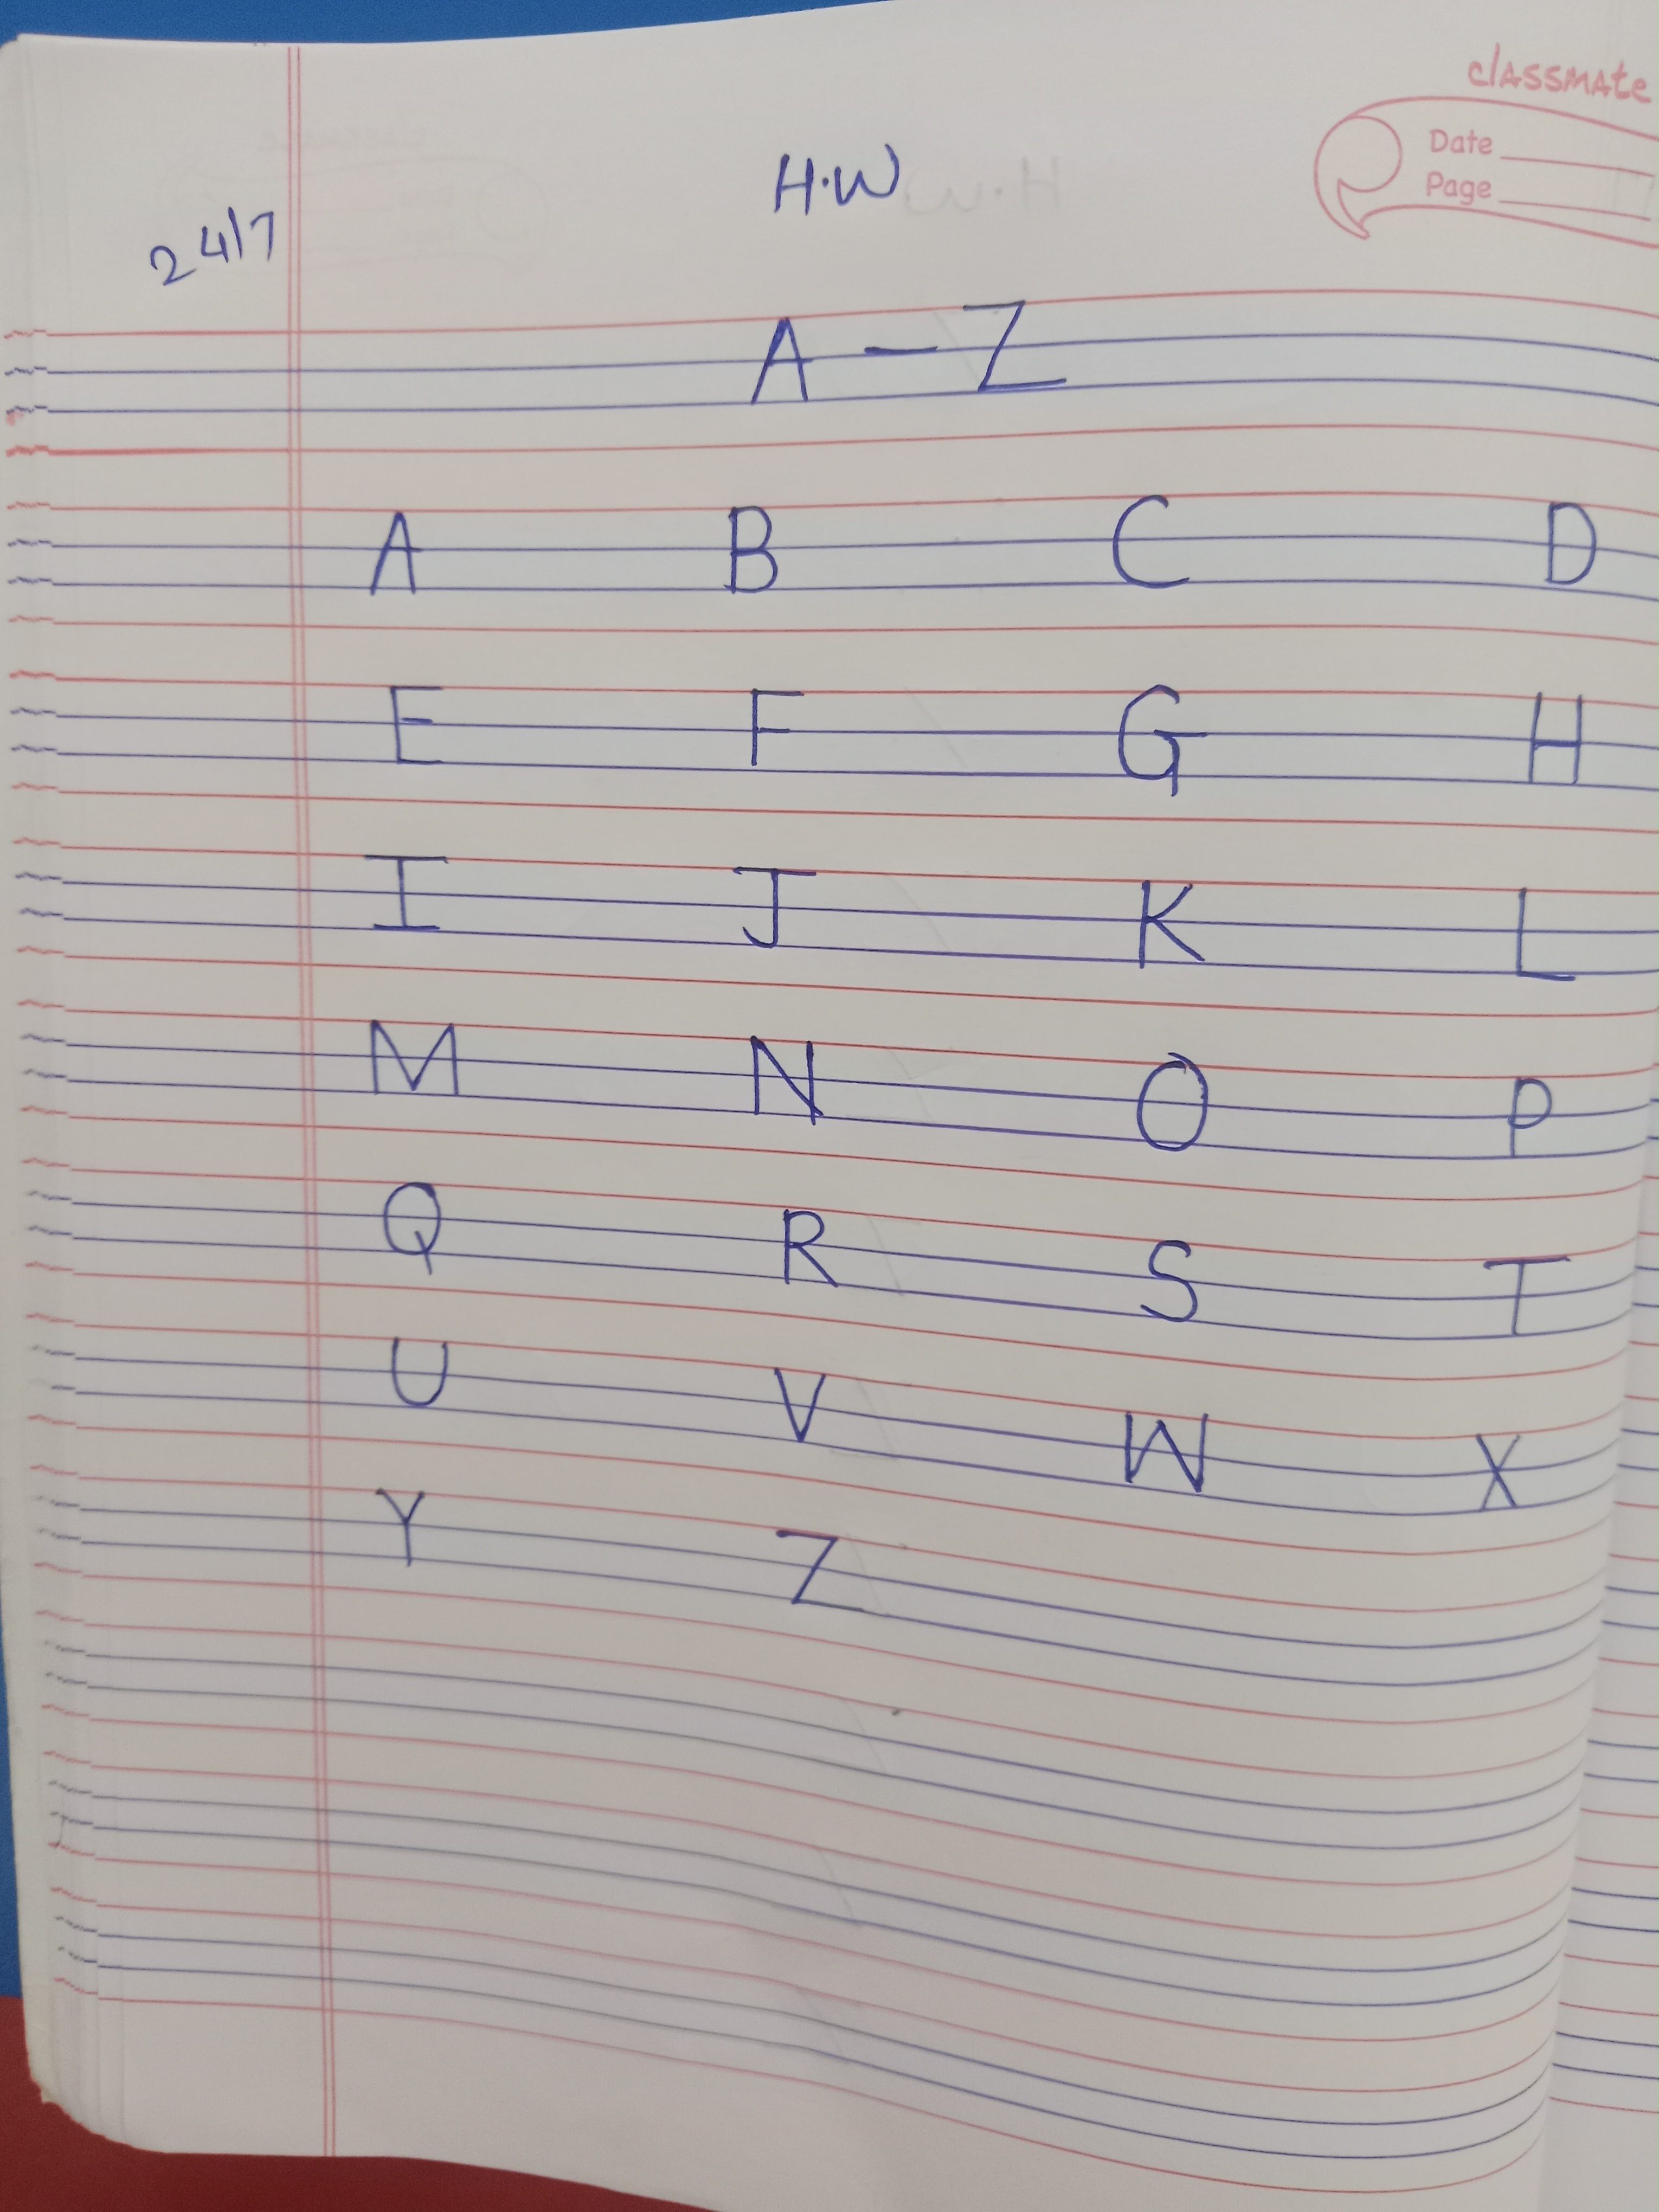 classmate
Date
Page
H.W
24/7
A - Z
A B C D
E F G H
I J K L
M N O P
Q R S T
U V W X
Y Z